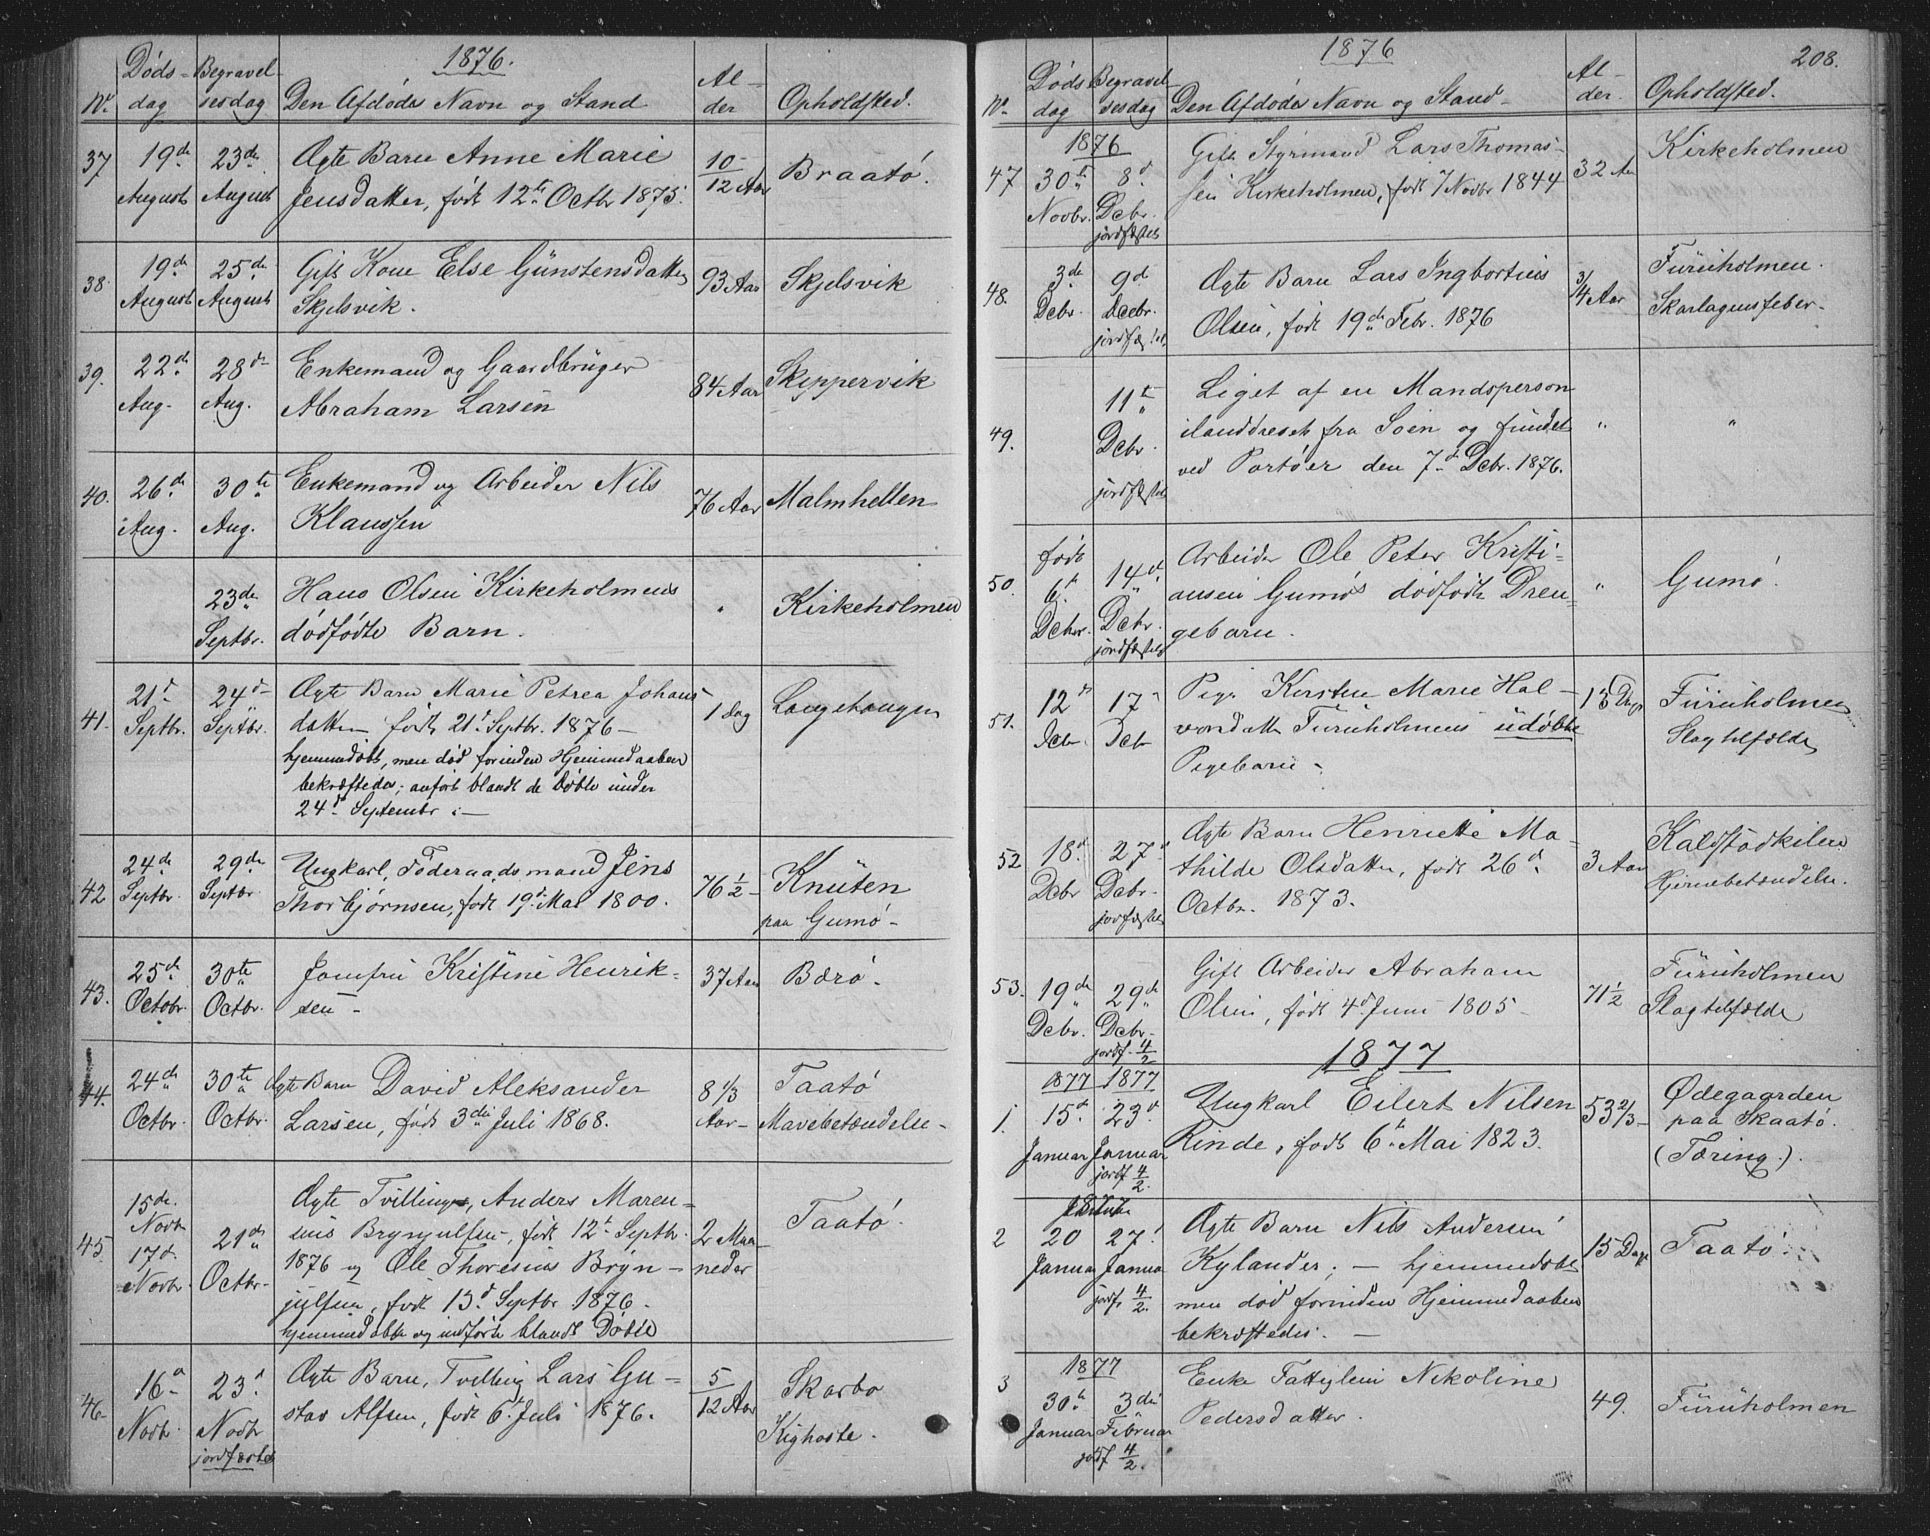 1876.
Døds- Begravel- Al-
No. dag sesdag Den Afdødes Navn og Stand der Opholdsted.
37 19de 23de Ægte Barn Anne Marie 10/12 Aar Braatø.
August August Jensdatter, født 12te Octbr 1875.
38. 19de 25de Gift Kone Else Günstensdatter 93 Aar Skjelsvik
August August Skjelsvik.
39. 22de 28de Enkemand og Gaardbrüger 84 Aar Skippervik
Aug. Aug. Abraham Larsen
40. 26de 30te Enkemand og Arbeider Nils 76 Aar Malmhellen
Aug. Aug. Klaussen
23de Hans Olsen Kirkeholmens " Kirkeholmen
Septbr. dødfødte Barn.
41. 21de 24de Ægte Barn Marie Petrea Johans- 1 dag Langehangen
Septbr. Septbr. datter født 21de Septbr. 1876 –
hjemmedøbt, men død forinden Hjemmedaaben
bekræftedes; anført blandt de Døbte ünder
24de Septembr :–
42 24de 29de Ungkarl, Föderaadsmand Jens 76 1/2 – Knüten
Septbr. Septbr. Thorbjørnsen, født 19de Mai 1800. paa Gumø –
43. 25de 30te Jomfru Kristine Henrik- 37 Aar Bærø.
Octobr. Octbr. sen –
44. 24de 30te Ægte Barn David Aleksander 8 1/3 Taatø
Octbr. Octbr. Larsen, født 3die Juli 1868. Aar – Mavebetændelse –
15de Ægte Tvillinger, Anders Maren-
Novbr. sius Brynjulfsen, født 12te Septbr. Taatø.
45 17de 21de 1876 og Ole Thoresius Bryn- 2 Maa-
Novbr. Octbr. julfsen, født 13de Septbr 1876. neder
hjemmedøbte og indførte blandt Døbte
46. 16de 23de Ægte Barn, Tvilling Lars Gu- 5/12 Aar Skarbo
Novbr. Novbr. stav Alfsen, født 6te Juli 1876. Kighoste.
jordfæstet
1876 208.
Døds Begravel Al-
No. dag sesdag Den Afdødes Navn og Stand – der. Opholdsted.
1876
47 30te 8de Gift Styrmand Lars Thomas- 32 Aar Kirkeholmen
Novbr. Dcbr. sen Kirkeholmen, født 7 Novbr 1844
jordfæstet
48. 3de 9de Ægte Barn Lars Ingbortius 3/4 Aar Fürüholmen.
Dcbr. Decbr. Olsen, født 19de Febr. 1876 Skarlagensfeber.
jordfæstet
49. 11te Liget af en Mandsperson " "
Dcbr. ilanddrevet fra Soen og fundet
jordfæstet ved Portøer den 7de Dcbr. 1876.
50. født 14de Arbeider Ole Peter Kristi- " Gumø.
6te Dcbr. ansen Gumøs dødfødte Dren-
Dcbr. jordfæstet gebarn.
51. 12te 17 Pige Kirsten Marie Hal- 13 Dage Fürüholmen
Dcbr Dcb vorsdatter Fürüholmens üdøbte Slagtilfælde
Pigebarn –
52 18de 27de Ægte Barn Henriette Ma- 3 Aar Kalstødkilen
Dcbr Dcbr. thilde Olsdatter, født 26de Hjernebetændelse.
jordfæstet Octbr. 1873.
53. 19de 29de Gift Arbeider Abraham 71 1/2 Fürüholmen
Dcbr. Dcbr. Olsen, født 4de Juni 1805 – Slagtilfælde
jordf. 4/2
1877
1877 1877
1. 15de 23de Ungkarl Eilert Nilsen 53 2/3 – Ødegaarden
Januar Januar Rinde, født 6te Mai 1823. paa Skaatø.
jordf 4/2. (Tæring.).
1877
2 20 27de Ægte Barn Nils Andersen 15 Dage Taatø.
Januar Januar Kylander; – hjemmedøbt
jordf 4/2. men død forinden Hjemmedaaben
bekræftedes. –
1877
3 30te 3die Enke Fattiglem Nikoline 49. Fürüholmen
Januar Februar Pedersdatter.
jordf 4/2.